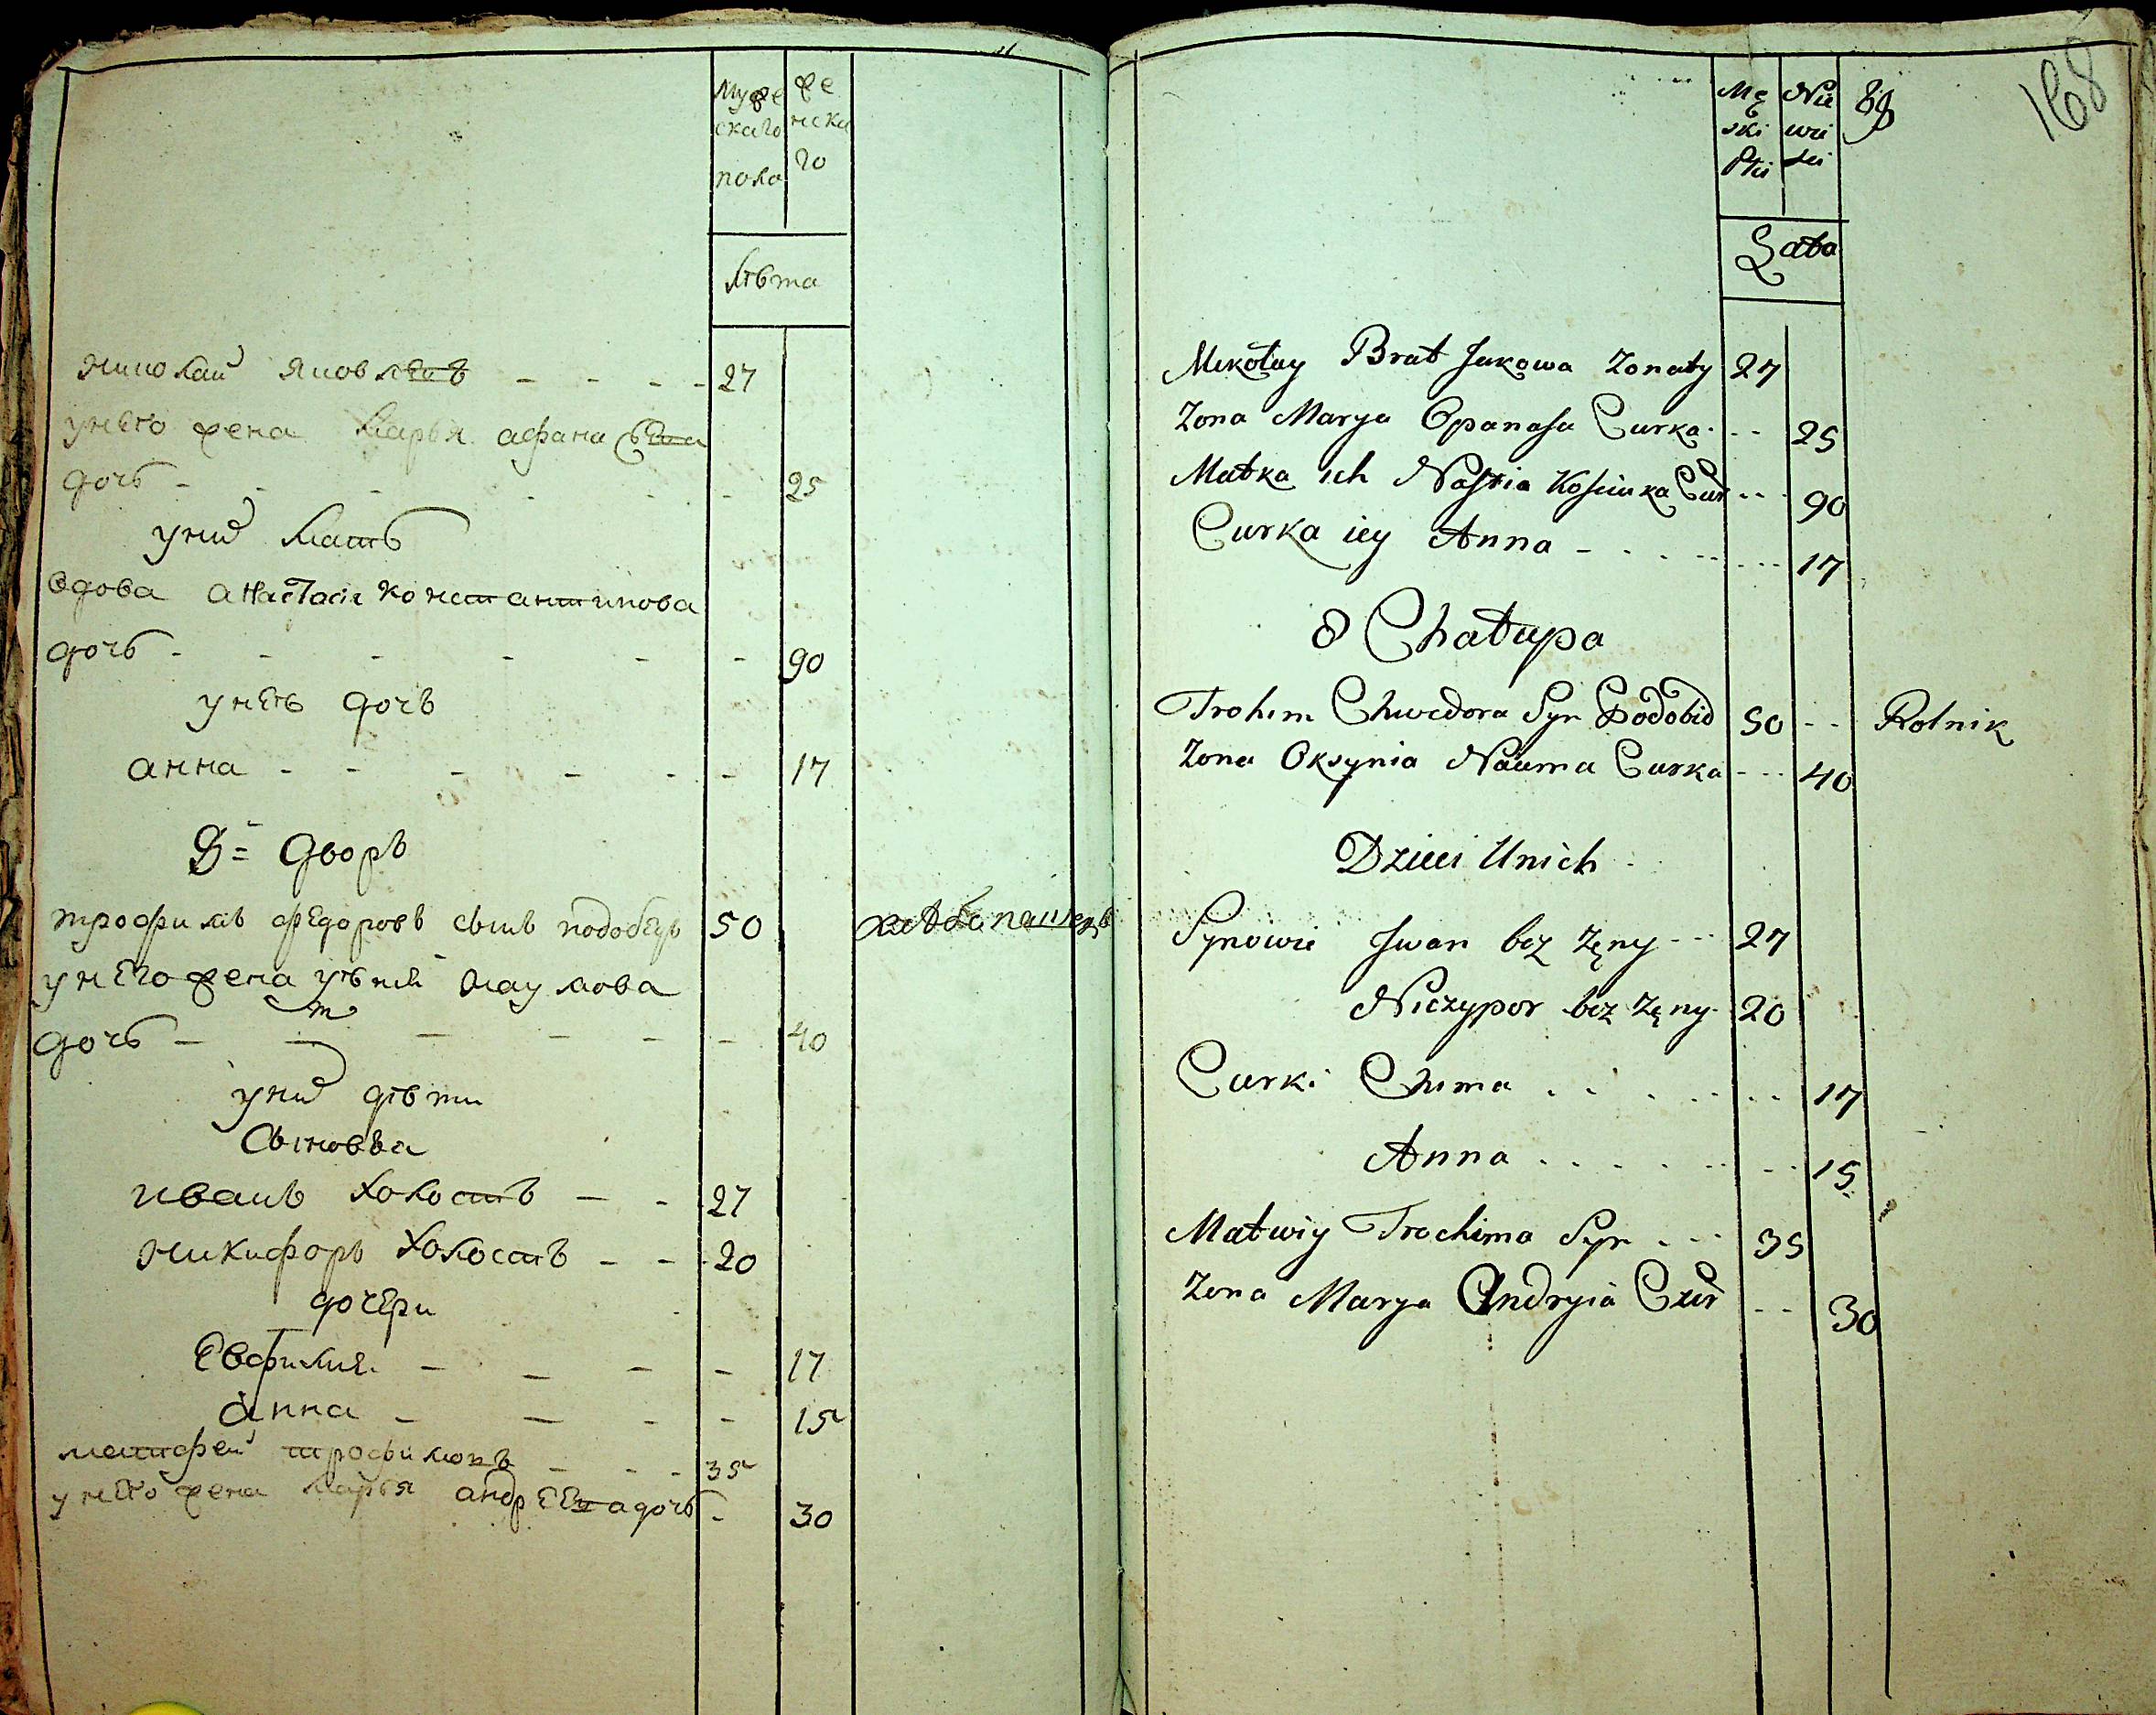 Муже же
скаго нска
пола го
лѣта
николай яковлевъ - - - - 27
унего жена марья афанасьева
дочь - - - - - - 25
унихъ мать
вдова анастасия константинова
дочь - - - - - - 90
унеѣ дочь
анна - - - - - - 17
8= дворъ
трофимъ федоровъ сынъ подобедъ 50 хлебопашецъ
унего жена наумова
дочь - - - - - - 40
унихъ дѣти
сыновья
иванъ холостъ - - 27
никифоръ холостъ - - - 20
дочери
Евфимия - - - - 17
анна - - - - 15
матфей трофимовъ - - - 35
унего жена марья андреева дочь - 30
168
Mę Nie 89
ski wie
Płci ści
Lata
Mikołay Brat Jakowa Żonaty 27
Żona Marya Opanasa Curka - - 25
Matka ich Nastia Kosciuka Cur - - 90
Curka iey Anna - - - - - - 17
8 Chałupa
Trohim Chwedora Syn Podobid 50 - - Rolnik
Żona Oksynia Nauma Curka - - - 40
Dzieci Unich
Synowie Jwan bez żęny - - - 27
Niczypor bez żęny 20
Curki Chima - - - - - - 17
Anna - - - - - - 15
Matwiy Trochima Syn - - - 35
Żona Marya Andryia Cur - - 30